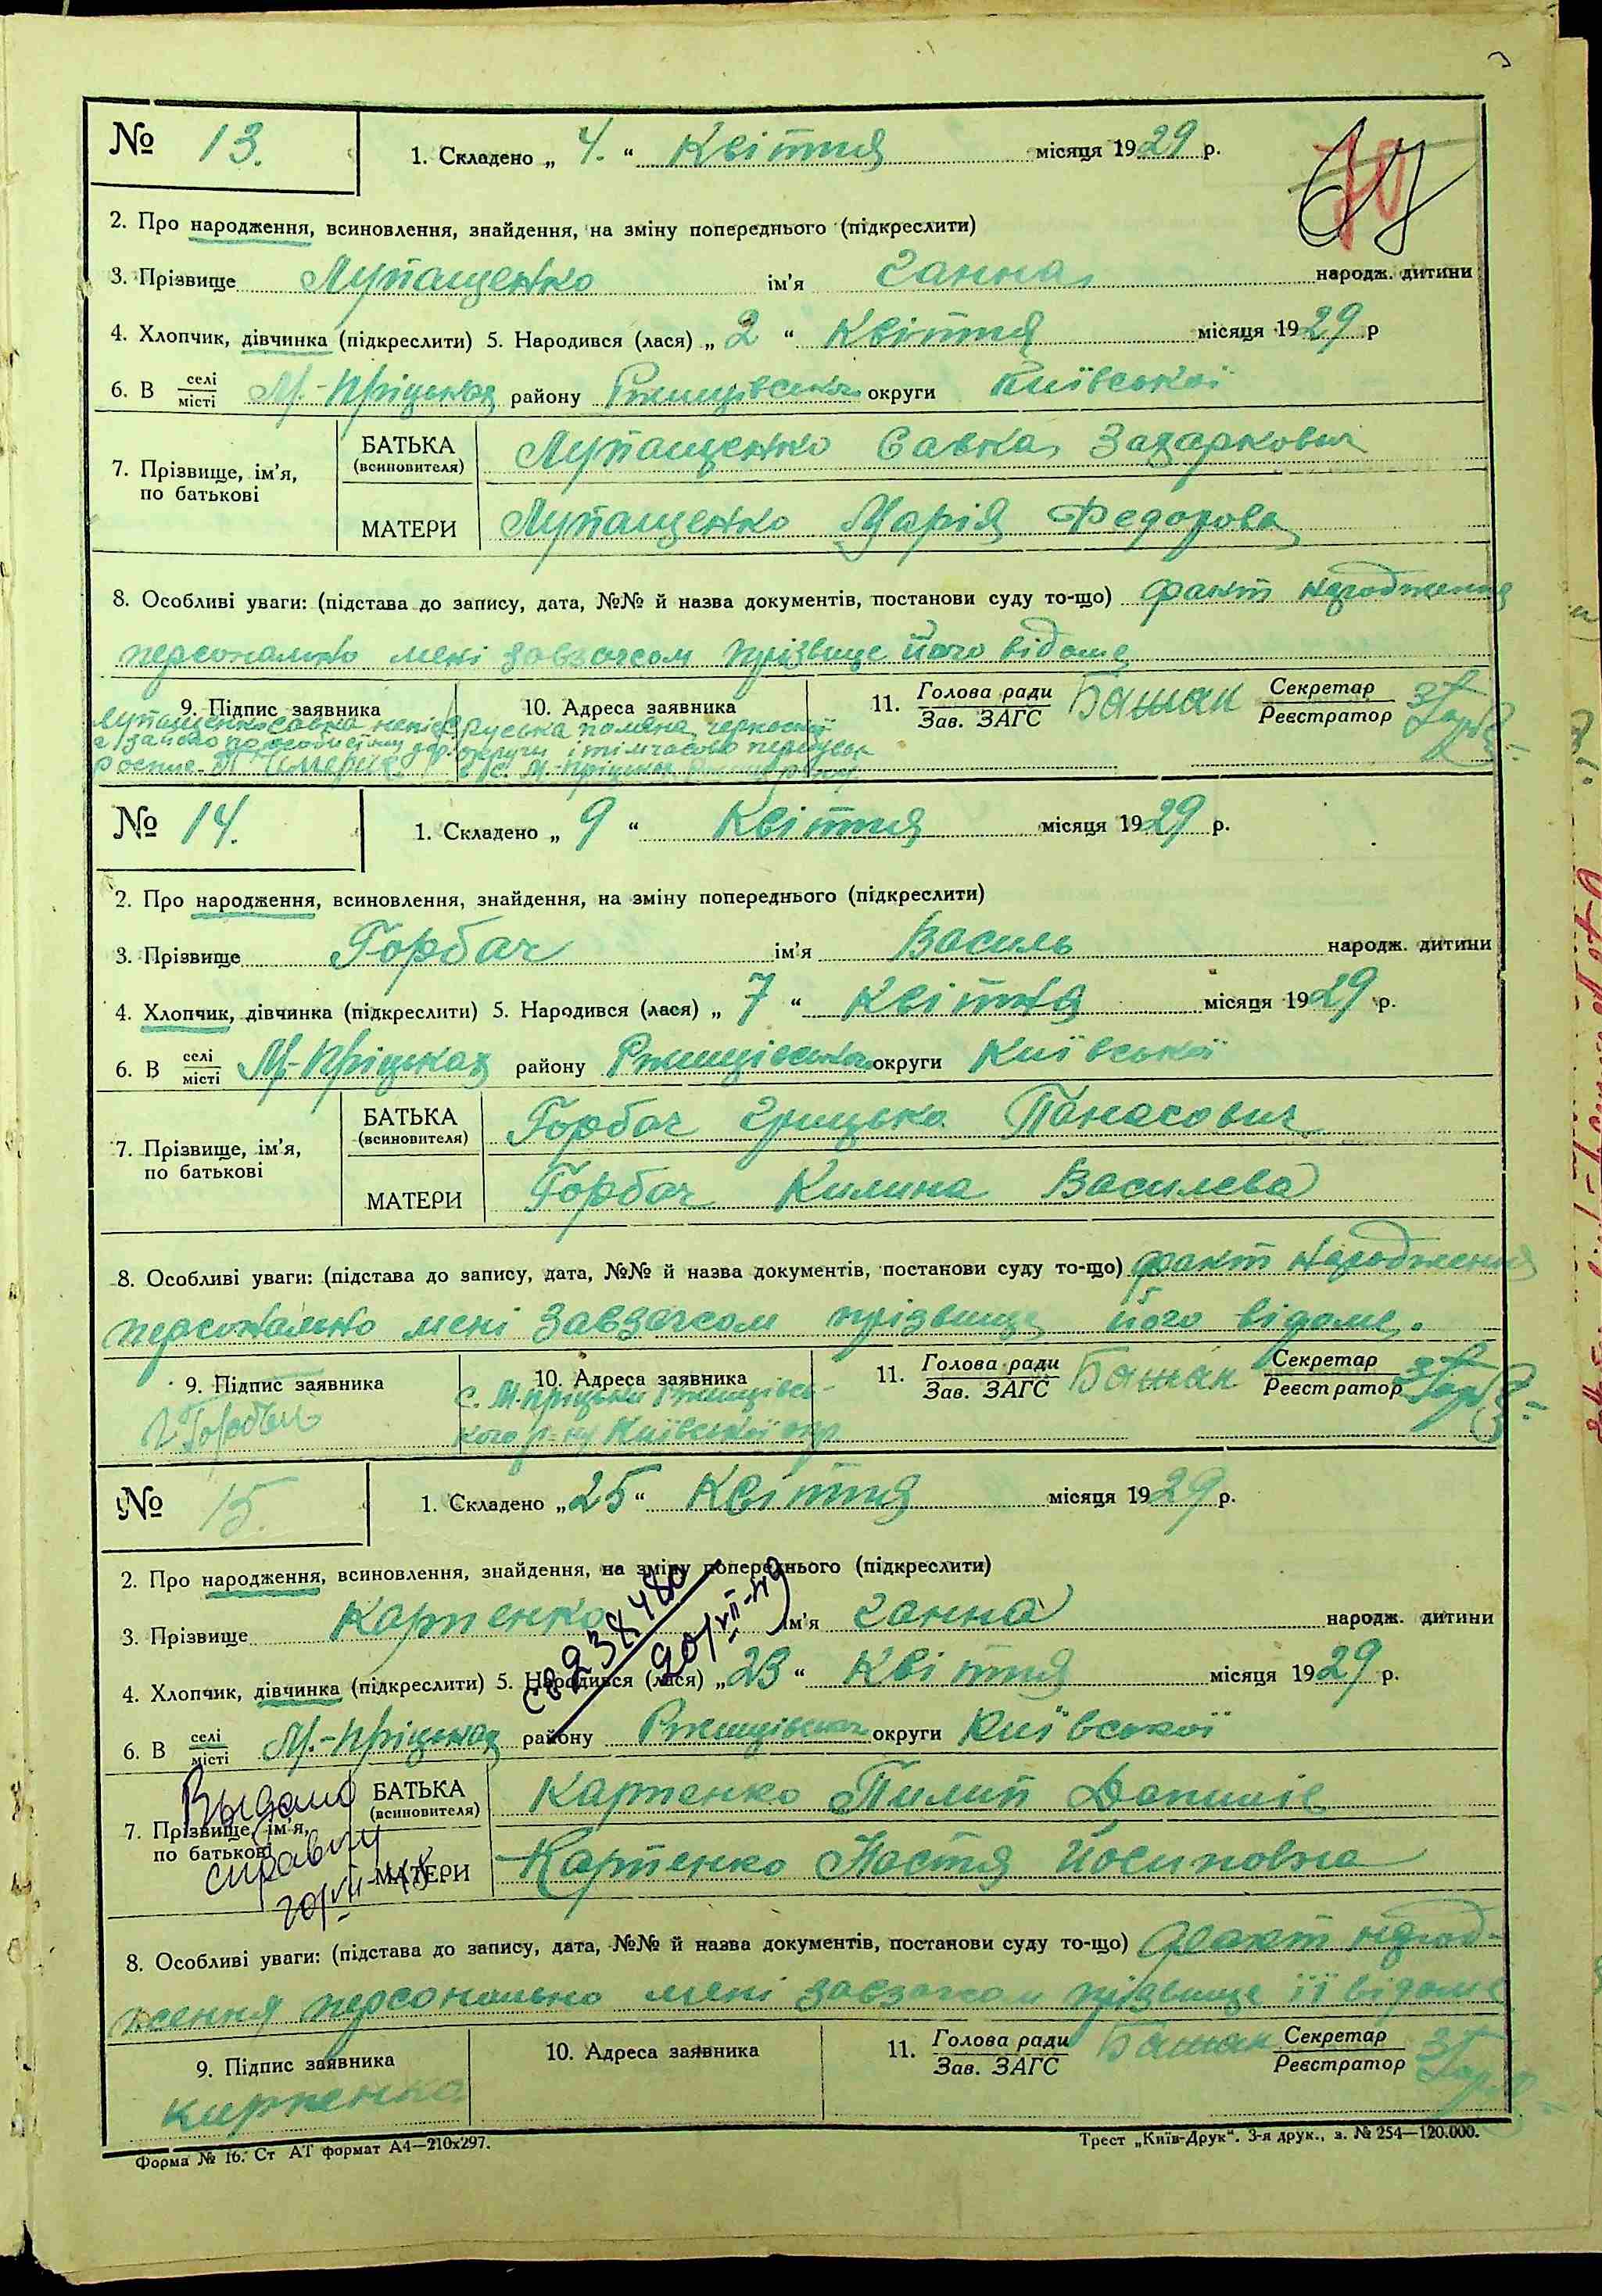 № 13.
1. Складено „ 4. “ Квітня місяця 1929 р.
2. Про народження, всиновлення, знайдення, на зміну попереднього (підкреслити)
3. Прізвище Лупащенко ім'я Ганна народж. дитини
4. Хлопчик, дівчинка (підкреслити) 5. Народився (лася) „ 2 “ Квітня місяця 1929 р
6. В селі місті М.-Пріцьках району Ржищівськ. округи Київської
7. Прізвище, ім'я, по батькові
БАТЬКА (всиновителя) Лупащенко Савка Захаркович
МАТЕРИ Лупащенко Марія Федорова
8. Особливі уваги: (підстава до запису, дата, №№ й назва документів, постанови суду то-що) факт народження
персонально мені завзагсом прізвище його відоме
9. Підпис заявника
10. Адреса заявника
11. Голова ради Зав. ЗАГС Башак Секретар Реєстратор
Лупащенко Савка непіс
Руська поляна черкаської
округи і тимчасово перебував
с. М.-Пріцьках
№ 14.
1. Складено „ 9 “ Квітня місяця 1929 р.
2. Про народження, всиновлення, знайдення, на зміну попереднього (підкреслити)
3. Прізвище Горбач ім'я Василь народж. дитини
4. Хлопчик, дівчинка (підкреслити) 5. Народився (лася) „ 7 “ Квітня місяця 1929 р.
6. В селі місті М.-Пріцьках району Ржищівськ. округи Київської
7. Прізвище, ім'я, по батькові
БАТЬКА (всиновителя) Горбач Грицько Панасович
МАТЕРИ Горбач Килина Василева
8. Особливі уваги: (підстава до запису, дата, №№ й назва документів, постанови суду то-що) факт народження
персонально мені завзагсом прізвище його відоме.
9. Підпис заявника
10. Адреса заявника
11. Голова ради Зав. ЗАГС Башак Секретар Реєстратор
Г Горбач
с. М.Пріцьки Ржищівсь-
кого р-ну Київської окр
№ 15.
1. Складено „ 25 “ Квітня місяця 1929 р.
2. Про народження, всиновлення, знайдення, на зміну попереднього (підкреслити)
3. Прізвище Карпенко ім'я Ганна народж. дитини
4. Хлопчик, дівчинка (підкреслити) 5. Народився (лася) „ 23 “ Квітня місяця 1929 р.
6. В селі місті М.-Пріцьках району Ржищівськ. округи Київської
7. Прізвище, ім'я, по батькові
БАТЬКА (всиновителя) Карпенко Пилип Данилів
МАТЕРИ Карпенко Настя Йосиповна
Выдано
справку
20/VII-48
8. Особливі уваги: (підстава до запису, дата, №№ й назва документів, постанови суду то-що) факт народ-
ження персонально мені завзагсом прізвище її відоме
9. Підпис заявника
10. Адреса заявника
11. Голова ради Зав. ЗАГС Башак Секретар Реєстратор
Карпенко
Форма № 16. Ст АТ формат А4—210х297.
Трест „Київ-Друк“. 3-я друк., з. № 254—120.000.